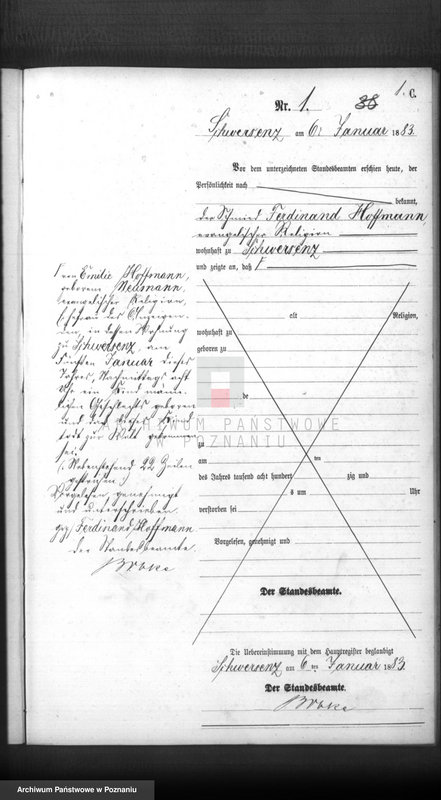 1. C.
Nr. 1.
Schwersenz am 6. Januar 1883.
Vor dem unterzeichneten Standesbeamten erschien heute, der
Persönlichkeit nach
bekannt,
der Schmied Ferdinand Hoffmann,
evangelischer Religion
wohnhaft zu Schwersenz
und zeigte an, daß Γ
Γ von Emilie Hoffmann,
geborene Neumann,
evangelischer Religion,
Ehefrau des Anzeigen-
den, in dessen Wohnung
zu Schwersenz, am
fünften Januar dieses
Jahres, Nachmittags acht
Uhr ein Kind männ-
lichen Geschlechts geboren
und daß dieses Kind
todt zur Welt gekommen
sei.
(: Nebenstehend 22 Zeilen
gestrichen :)
Vorgelesen, genehmigt
und unterschrieben
gez. Ferdinand Hoffmann
Der Standesbeamte.
alt Religion,
wohnhaft zu
geboren zu
de
zu
am ten
des Jahres tausend acht hundert zig und
um Uhr
verstorben sei
Vorgelesen, genehmigt und
Der Standesbeamte.
Die Uebereinstimmung mit dem Hauptregister beglaubigt
Schwersenz am 6ten Januar 1883.
Der Standesbeamte.
ARCHIWUM PAŃSTWOWE
W POZNANIU
Archiwum Państwowe w Poznaniu